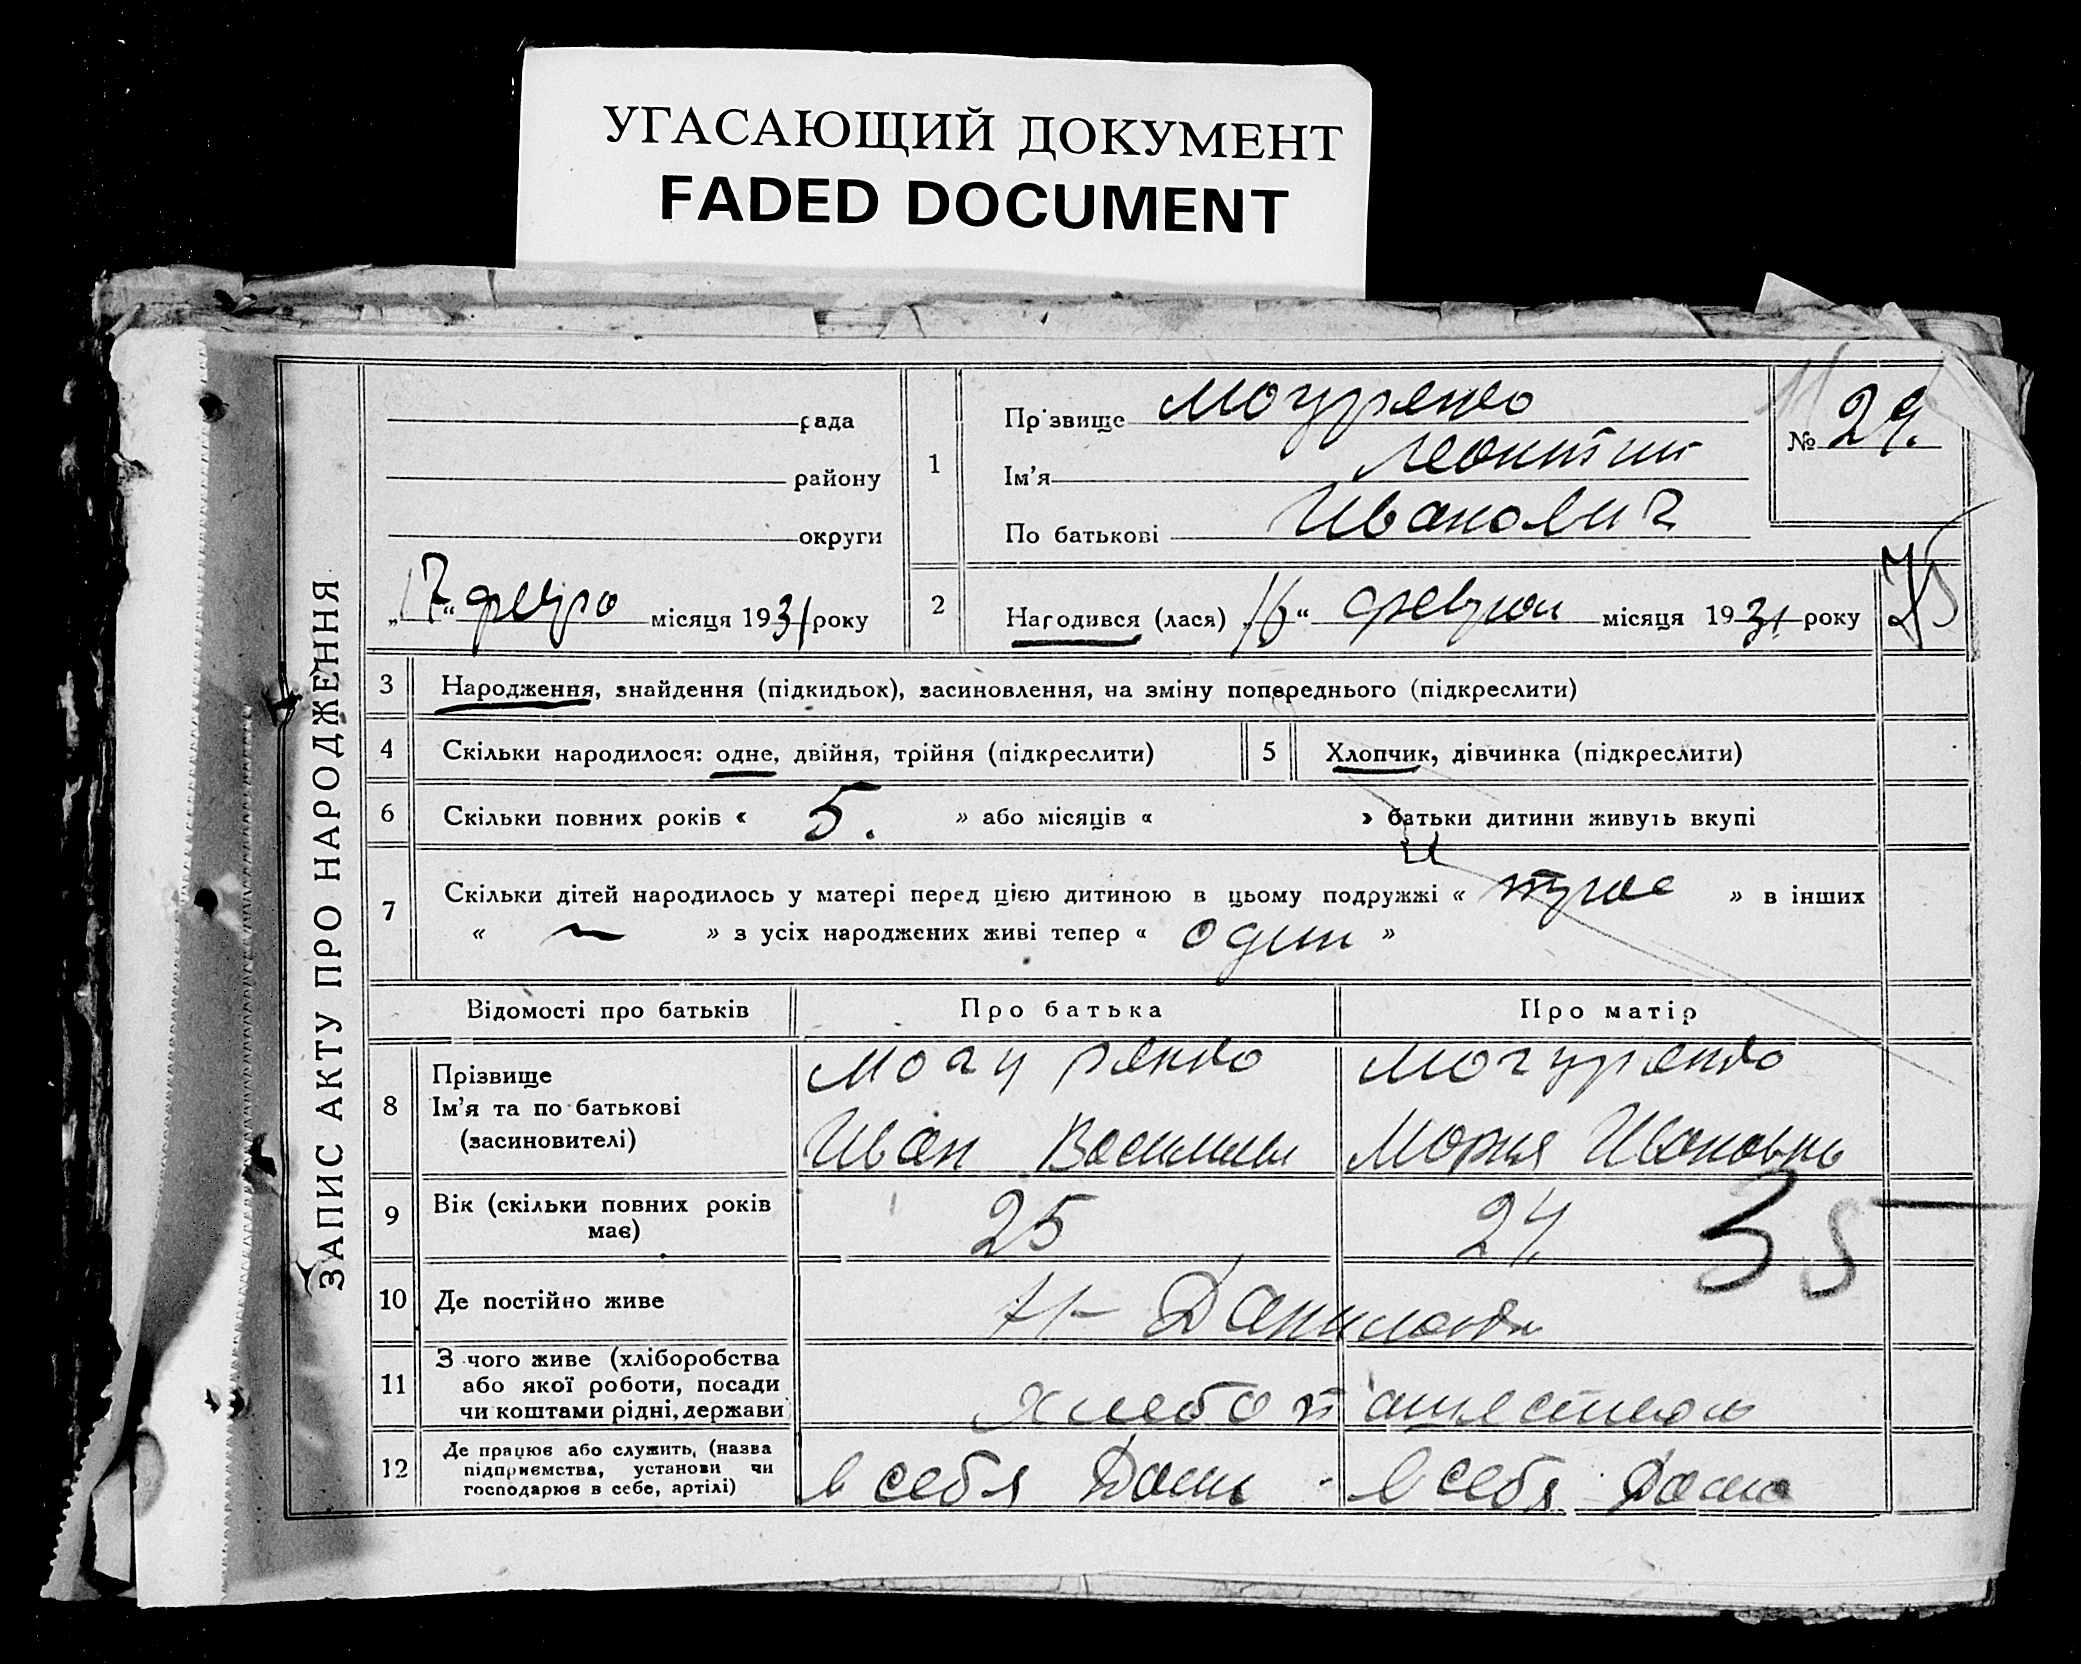 УГАСАЮЩИЙ ДОКУМЕНТ
FADED DOCUMENT
ЗАПИС АКТУ ПРО НАРОДЖЕННЯ
рада
району
округи
„17“ февро місяця 1931 року
1
Прізвище Моцуренко
Ім'я Леонтий
По батькові Иванович
№ 24.
2
Народився (лася) „16“ феврол місяця 1931 року
75
3 Народження, знайдення (підкидьок), засиновлення, на зміну попереднього (підкреслити)
4 Скільки народилося: одне, двійня, трійня (підкреслити)
5 Хлопчик, дівчинка (підкреслити)
6 Скільки повних років « 5. » або місяців « » батьки дитини живуть вкупі
7 Скільки дітей народилось у матері перед цією дитиною в цьому подружжі « » в інших
« » з усіх народжених живі тепер « один »
Відомості про батьків
Про батька
Про матір
8
Прізвище
Ім'я та по батькові
(засиновителі)
Иван
Мария Ивановно
9 Вік (скільки повних років має)
25
24.
35
10 Де постійно живе
Н-
11 З чого живе (хліборобства
або якої роботи, посади
чи коштами рідні, держави
хлебопашеством
12 Де працює або служить, (назва
підприємства, установи чи
господарює в себе, артілі)
в себя Дома
в себя Дома